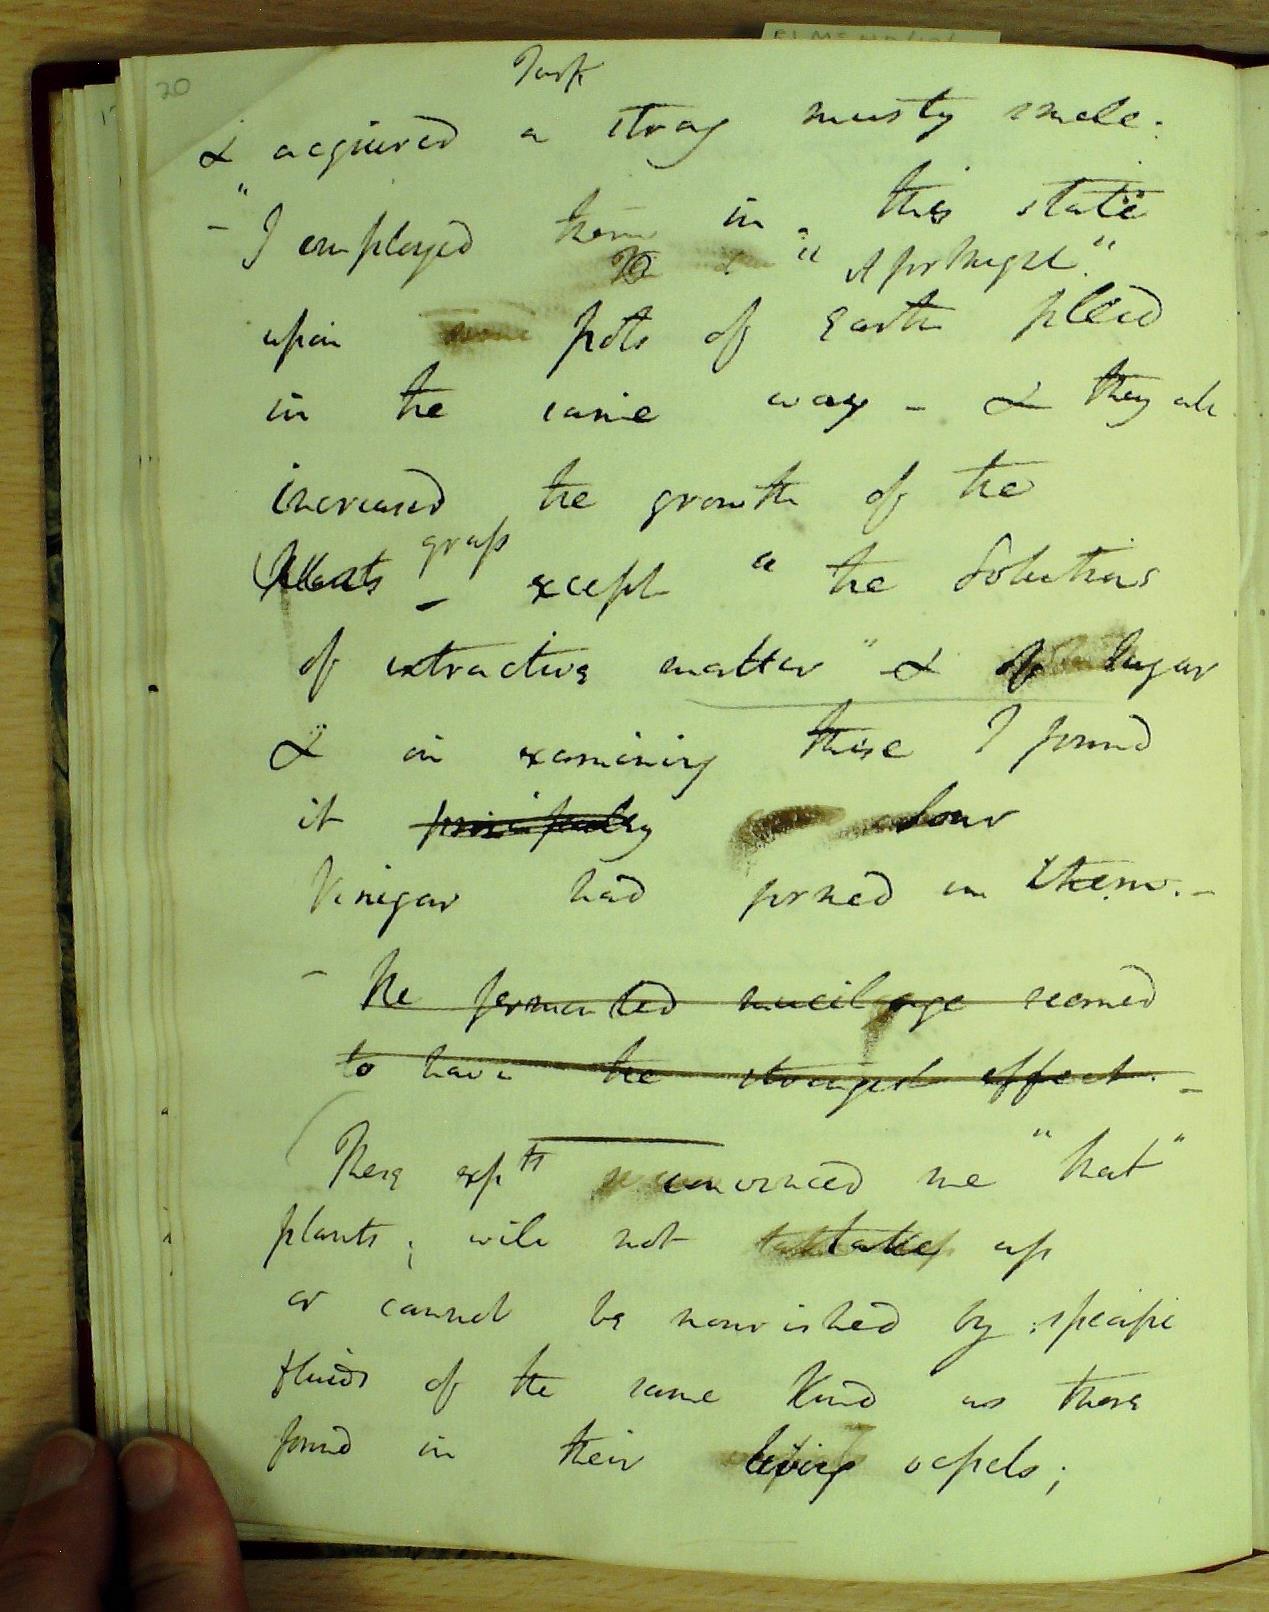 20
& acquired a strag musty smell.
- "I employed them in this state
"A fortnight"
upon pots of Earth placed
in the same way - & they all
increased the growth of the
Plants grass - except "the Solutions
of extractive matter" & of Sugar
& in examining these I found
it principally Sour
Vinegar had formed in them. -
- The fermented mucilage seemed
to have the strongest effect. -
These expts convinced me "that"
plants; will not take up
or cannot be nourished by specific
fluids of the same Kind as those
found in their living vessels;